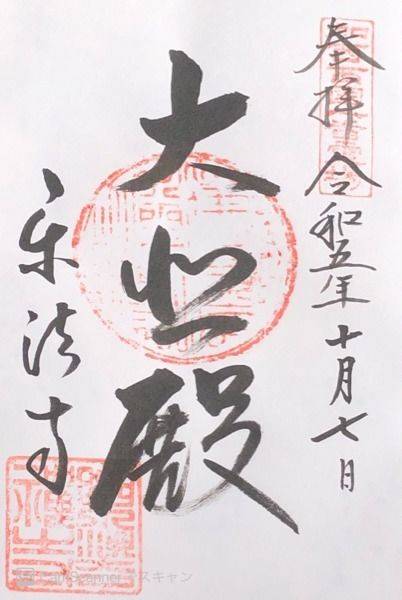 奉拝 令和五年十月七日
大悲殿
楽法寺
CamScanner でスキャン